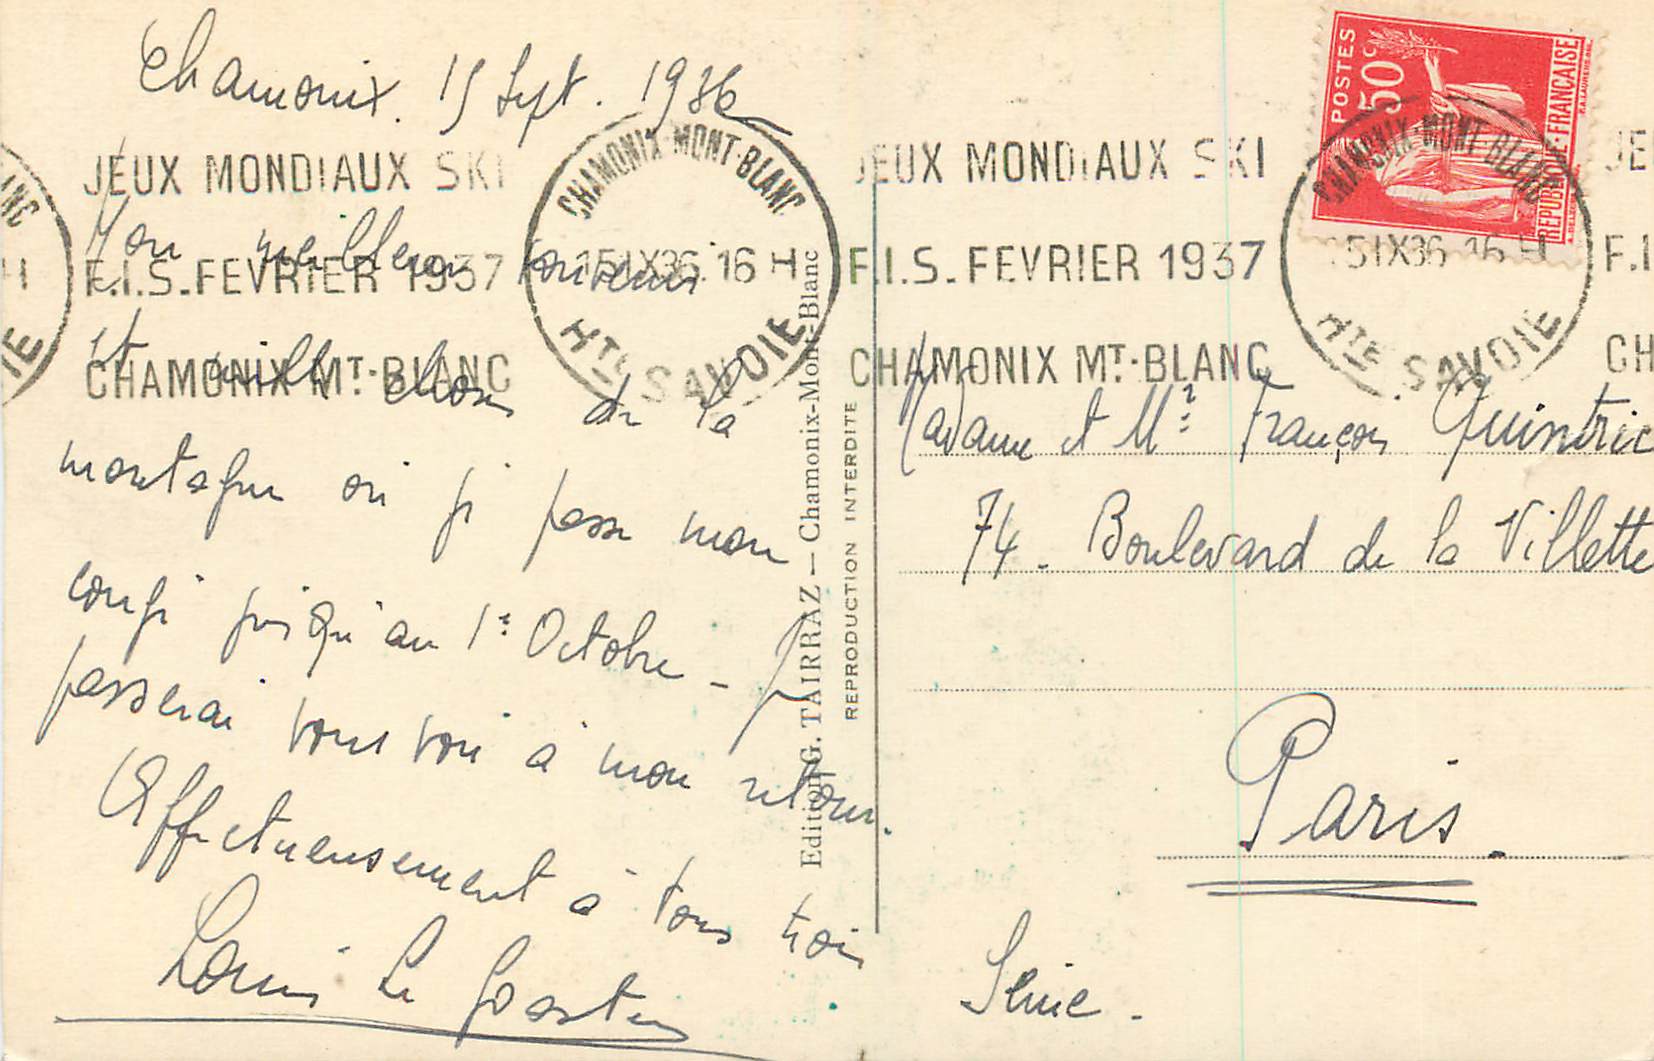 Chamonix. 15 Sept. 1936
JEUX MONDIAUX SKI
F.I.S. FEVRIER 1937
CHAMONIX MT.-BLANC
CHAMONIX-MONT-BLANC
15 IX 36 16 H
HTE SAVOIE
Mon meilleur souvenir
et mille choses de la
montagne où je passe mon
congé jusqu'au 1er Octobre - Je
passerai vous voir à mon retour.
Affectueusement à tous trois
Louis Le
Edition G. TAIRRAZ — Chamonix-Mont-Blanc
REPRODUCTION INTERDITE
JEUX MONDIAUX SKI
F.I.S. FEVRIER 1937
CHAMONIX MT.-BLANC
POSTES
50c
REPUBLIQUE-FRANÇAISE
CHAMONIX-MONT-BLANC
15 IX 36 16 H
HTE SAVOIE
JE
F.I
CH
BLANC
H
IE
Madame et Mr François Quintric
74. Boulevard de la Villette
Paris.
Seine.